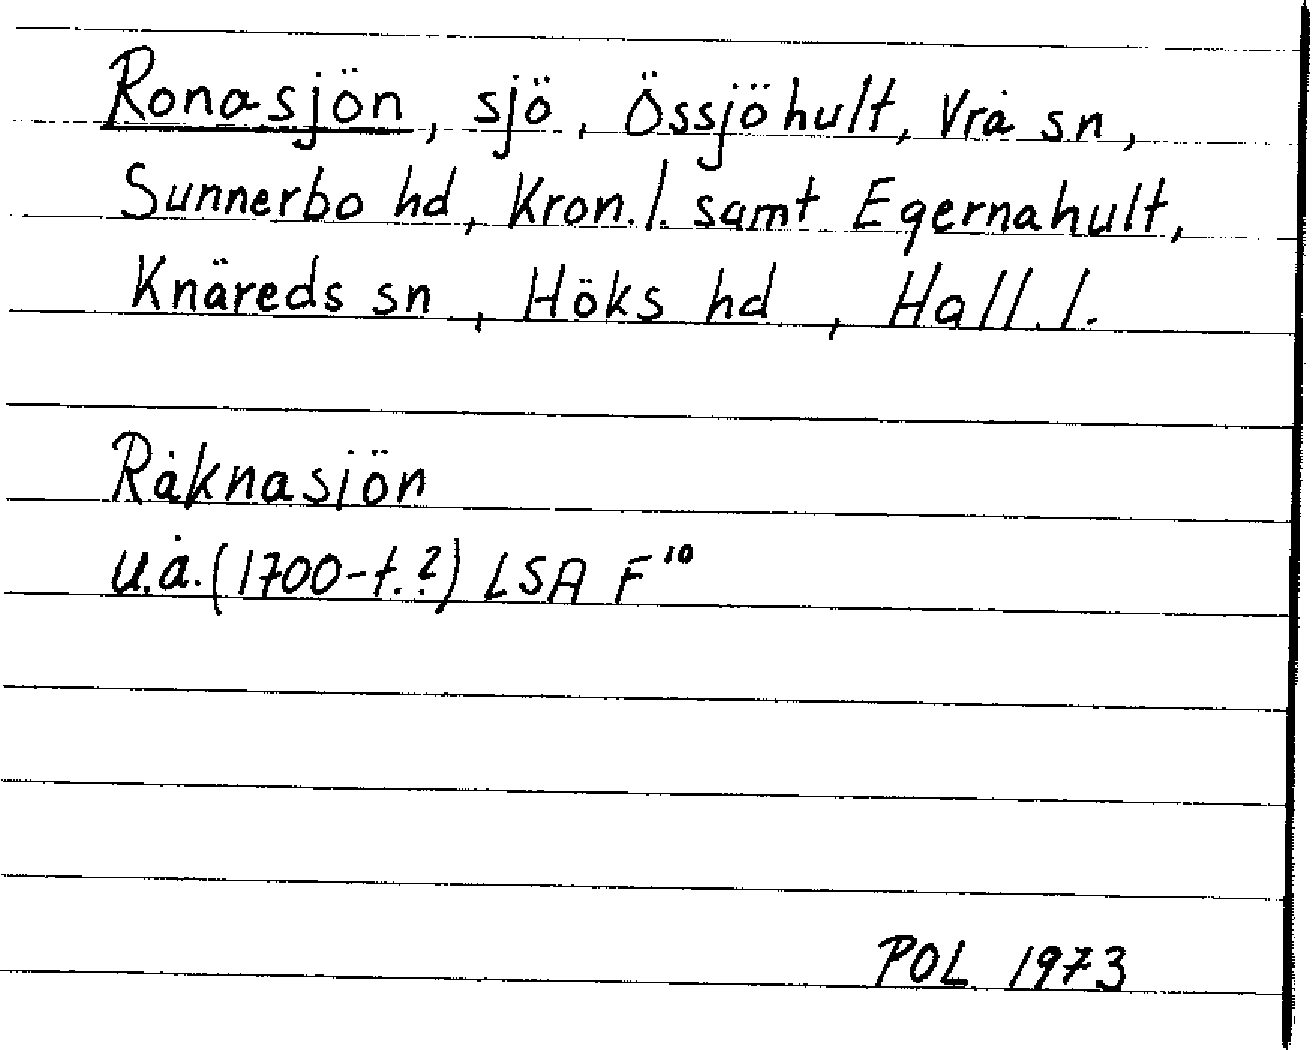 Ronasjön, sjö, Össjöhult, Vrå sn,
Sunnerbo hd, Kron.l. samt Egernahult,
Knäreds sn, Höks hd, Hall.l.
Råknasjön
u.å. (1700-t.?) LSA F¹⁰
POL 1973